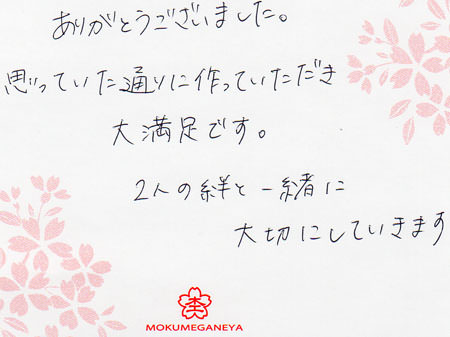 ありがとうございました。
思っていた通りに作っていただき
大満足です。
2人の絆と一緒に
大切にしていきます
MOKUMEGANEYA